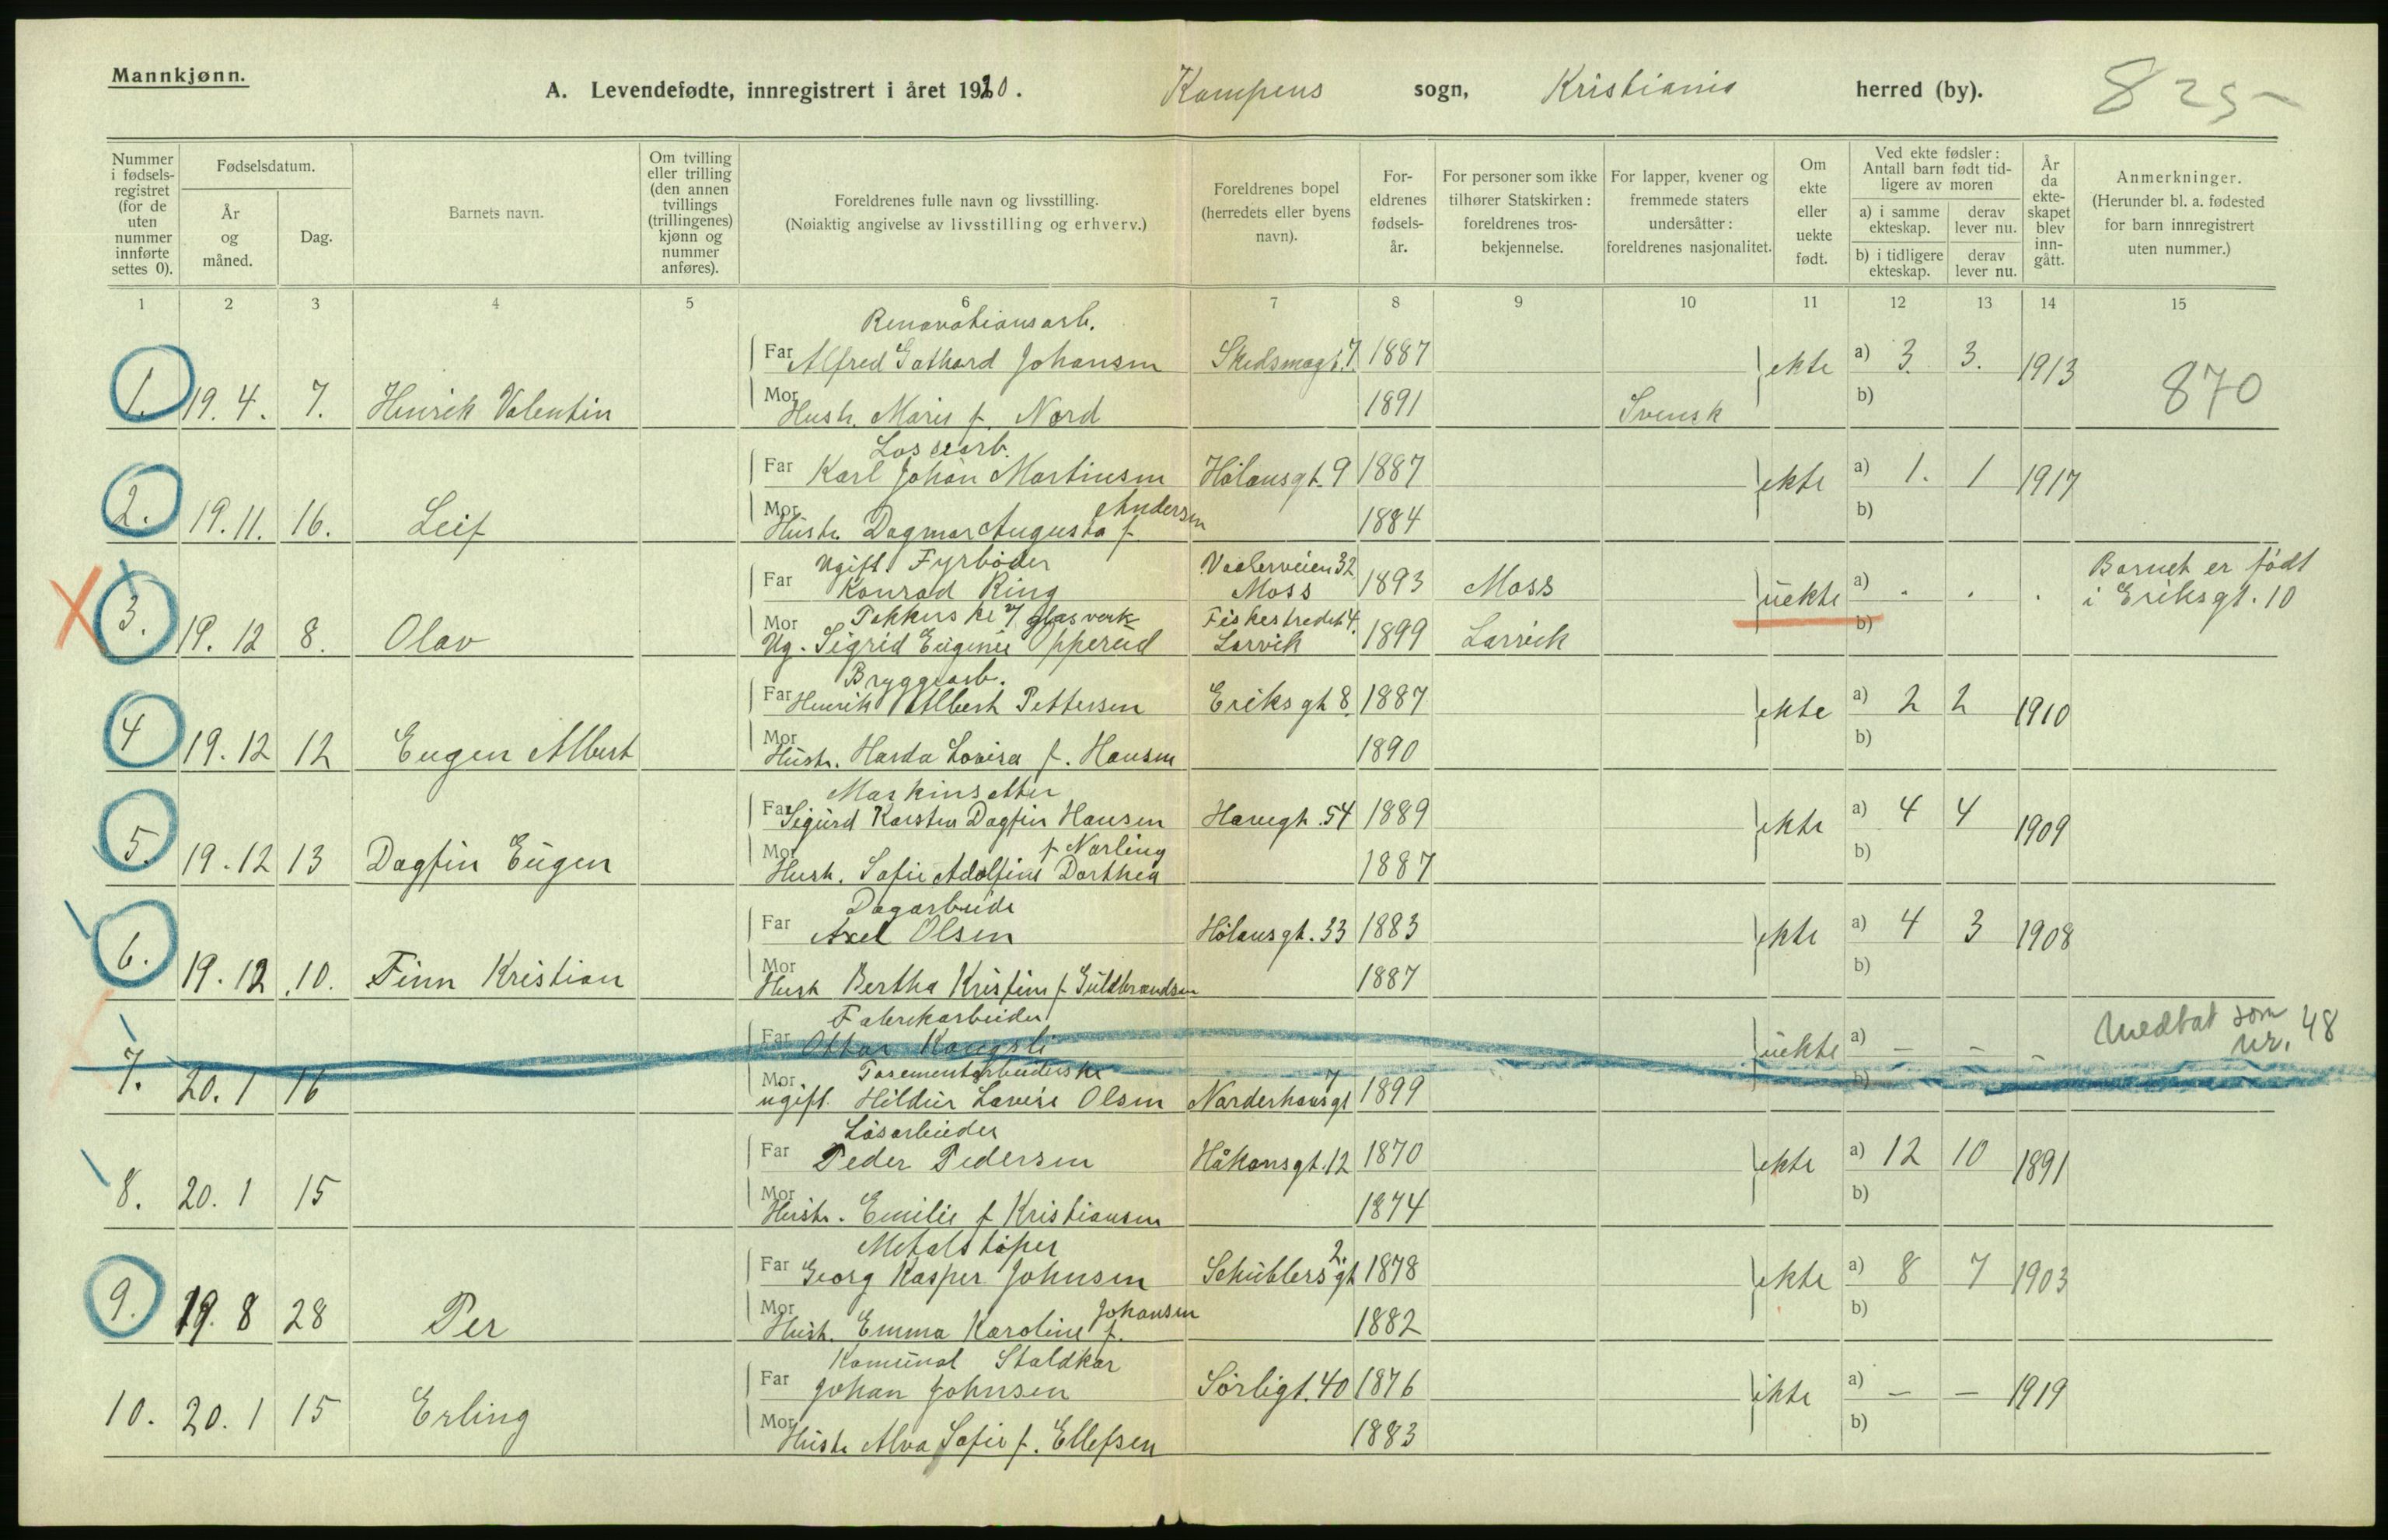 Mannkjønn.
A. Levendefødte, innregistrert i året 1920. Kampens sogn, Kristiania herred (by). 825-
Nummer i fødselsregistret (for de uten nummer innførte settes 0).
Fødselsdatum.
År og måned.
Dag.
Barnets navn.
Om tvilling eller trilling (den annen tvillings (trillingenes) kjønn og nummer anføres).
Foreldrenes fulle navn og livsstilling.
(Nøiaktig angivelse av livsstilling og erhverv.)
Foreldrenes bopel (herredets eller byens navn).
Foreldrenes fødselsår.
For personer som ikke tilhører Statskirken: foreldrenes trosbekjennelse.
For lapper, kvener og fremmede staters undersåtter: foreldrenes nasjonalitet.
Om ekte eller uekte født.
Ved ekte fødsler: Antall barn født tidligere av moren
a) i samme ekteskap.
derav lever nu.
b) i tidligere ekteskap.
derav lever nu.
År da ekteskapet blev inngått.
Anmerkninger.
(Herunder bl. a. fødested for barn innregistrert uten nummer.)
1 2 3 4 5 6 7 8 9 10 11 12 13 14 15
Renovationsarb.
Far Alfred Gothard Johansen Skedsmogt. 7. 1887 ekte a) 3. 3. 1913
1. 19. 4. 7. Henrik Valentin Mor Hustr. Marie f. Nord 1891 Svensk b) 870
Lossearb.
Far Karl Johan Martinsen Hølansgt. 9 1887 ekte a) 1. 1 1917
Andersen
2. 19. 11. 16. Leif Mor Hustr. Dagmar Augusta f. 1884 b)
Ugift. Fyrbøder Vaalerveien 32 Barnet er født
Far Konrad Ring Moss 1893 Moss uekte a) . . . i Eriksgt. 10
Pakkerske v glasverk Fiskestredet 4.
3. 19. 12 8. Olav Mor Ug. Sigrid Eugenie Opperud Larvik 1899 Larvik b)
Bryggearb.
Far Henrik Albert Pettersen Eriksgt 8. 1887 ekte a) 2 2 1910
4 19. 12 12 Eugen Albert Mor Hustr. Harda Lovisa f. Hansen 1890 b)
Maskinsetter
Far Sigurd Karsten Dagfin Hansen Havegt. 54 1889 ekte a) 4 4 1909
f. Norling
5. 19. 12 13 Dagfin Eugen Mor Hustr. Sofie Adolfine Dorthea 1887 b)
Dagarbeider
Far Axel Olsen Hølansgt. 33 1883 ekte a) 4 3 1908
6. 19. 12 10. Finn Kristian Mor Hustr Bertha Kristine f Guldbrandsen 1887 b)
Fabrikarbeider
Far Ottar Kongsli uekte a) - - - Medtat som nr. 48
Posementarbeiderske 7
7. 20. 1 16 Mor ugift. Hildur Lovise Olsen Norderhovsgt 1899 b)
Løsarbeider
Far Peder Pedersen Håkonsgt. 12 1870 ekte a) 12 10 1891
8. 20. 1 15 Mor Hustr. Emilie f Kristiansen 1874 b)
Metalstøper 2.
Far Georg Kasper Johnsen Schüblersgt 1878 ekte a) 8 7 1903
Johansen
9. 19. 8 28 Per Mor Hustr. Emma Karoline f. 1882 b)
Komunal Staldkar
Far Johan Johnsen Sørligt. 40 1876 ekte a) - - 1919
10. 20. 1 15 Erling Mor Hustr Alva Sofie f. Ellefsen 1883 b)